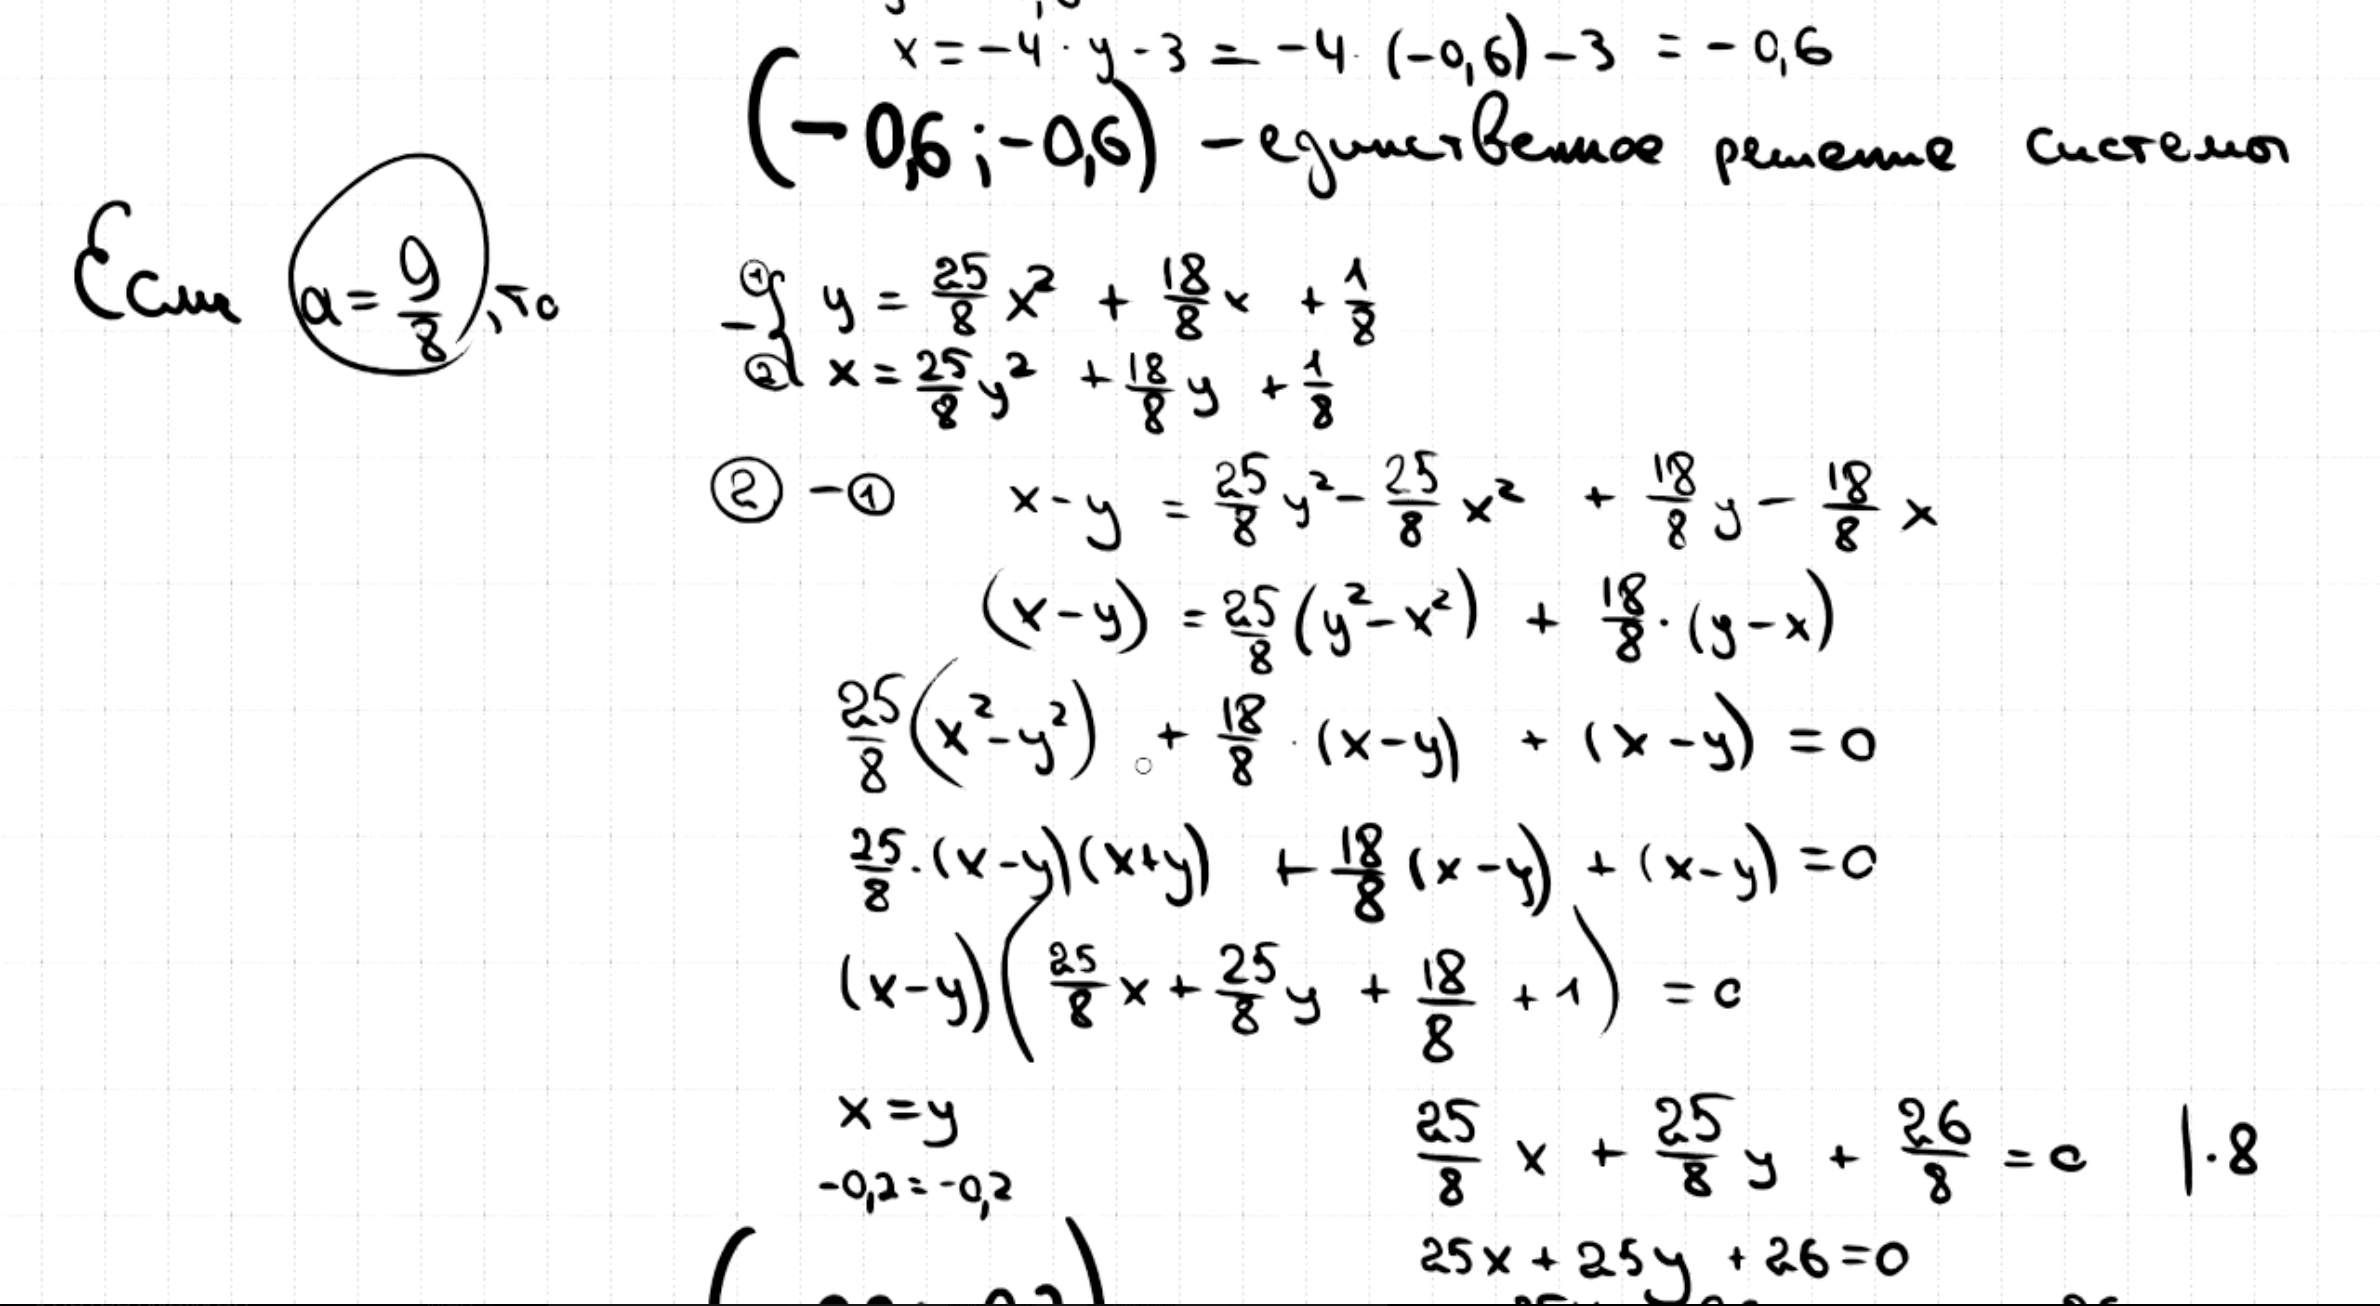 x = -4 · y - 3 = -4 · (-0,6) - 3 = -0,6
(-0,6 ; -0,6) - единственное решение системы
Если a = 9/8, то
① y = 25/8 x² + 18/8 x + 1/8
-
② x = 25/8 y² + 18/8 y + 1/8
② - ① x - y = 25/8 y² - 25/8 x² + 18/8 y - 18/8 x
(x - y) = 25/8 (y² - x²) + 18/8 · (y - x)
25/8 (x² - y²) + 18/8 · (x - y) + (x - y) = 0
25/8 · (x - y)(x + y) + 18/8 (x - y) + (x - y) = 0
(x - y)(25/8 x + 25/8 y + 18/8 + 1) = 0
x = y
-0,2 = -0,2
25/8 x + 25/8 y + 26/8 = 0 | · 8
25x + 25y + 26 = 0